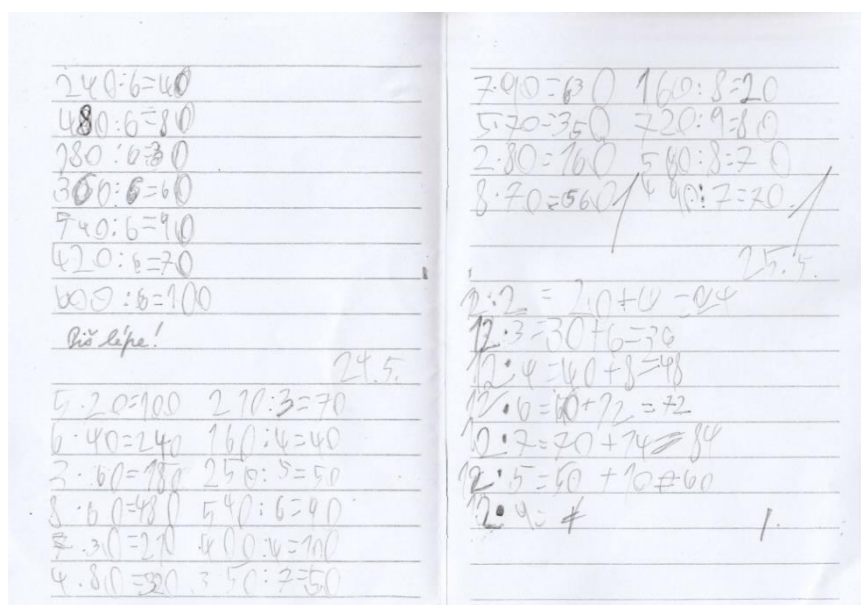 240:6=40
480:6=80
180:6=30
360:6=60
540:6=90
420:6=70
600:6=100
Piš lépe!
24.5.
5·20=100 210:3=70
6·40=240 160:4=40
3·60=180 250:5=50
8·60=480 540:6=90
7·30=210 400:4=100
4·80=320 350:7=50
7·90=630 160:8=20
5·70=350 720:9=80
2·80=160 560:8=70
8·70=560 490:7=70
25.5.
12·2=20+4=24
12·3=30+6=36
12·4=40+8=48
12·6=60+12=72
12·7=70+14=84
12·5=50+10=60
12·9=